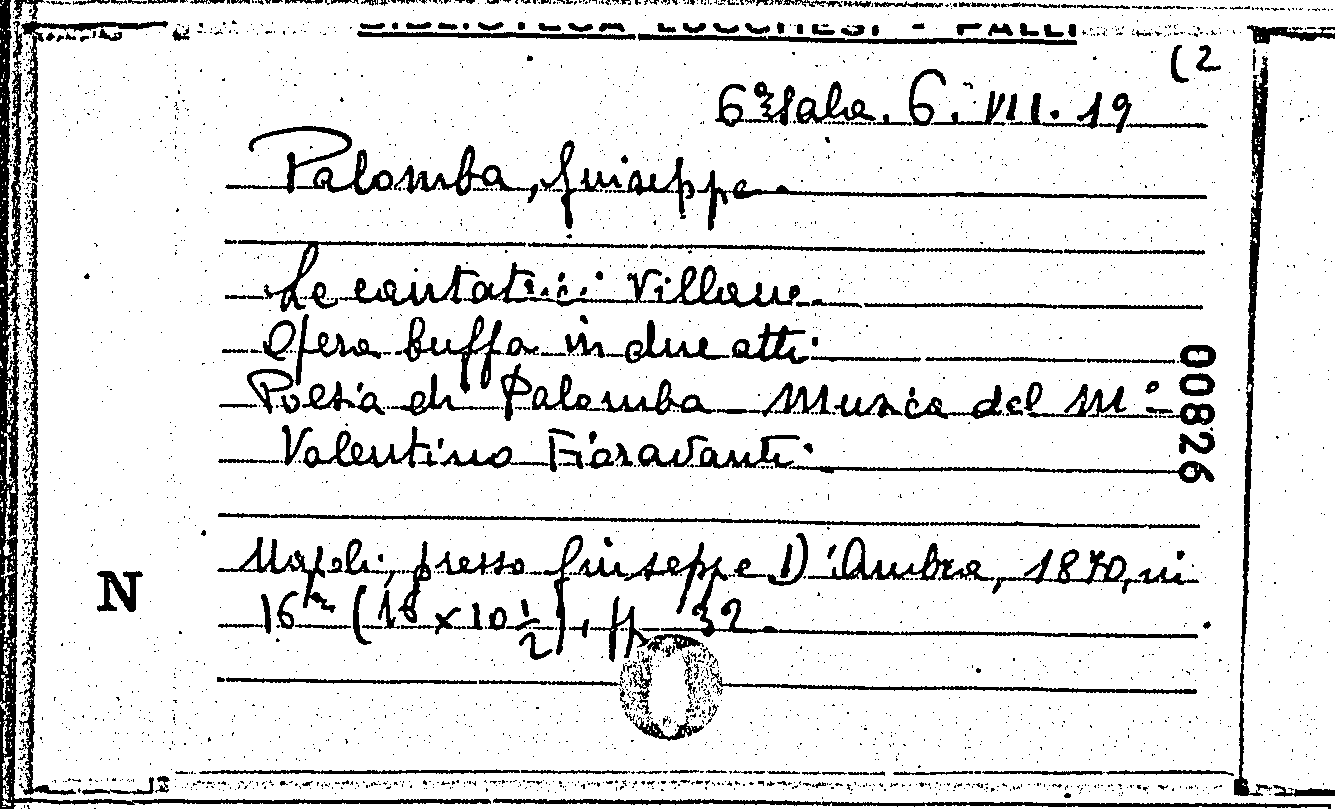 BIBLIOTECA LUCCHESI - PALLI
(2
6ª Sala. 6. VII. 19
Palomba, Giuseppe.
Le cantatrici Villane.
Opera buffa in due atti.
Poesia di Palomba - Musica del Mº
Valentino Fioravanti.
00826
Napoli, presso Giuseppe D'Ambra, 1870, in
N
16º (16 x 10 1/2), pp. 32.